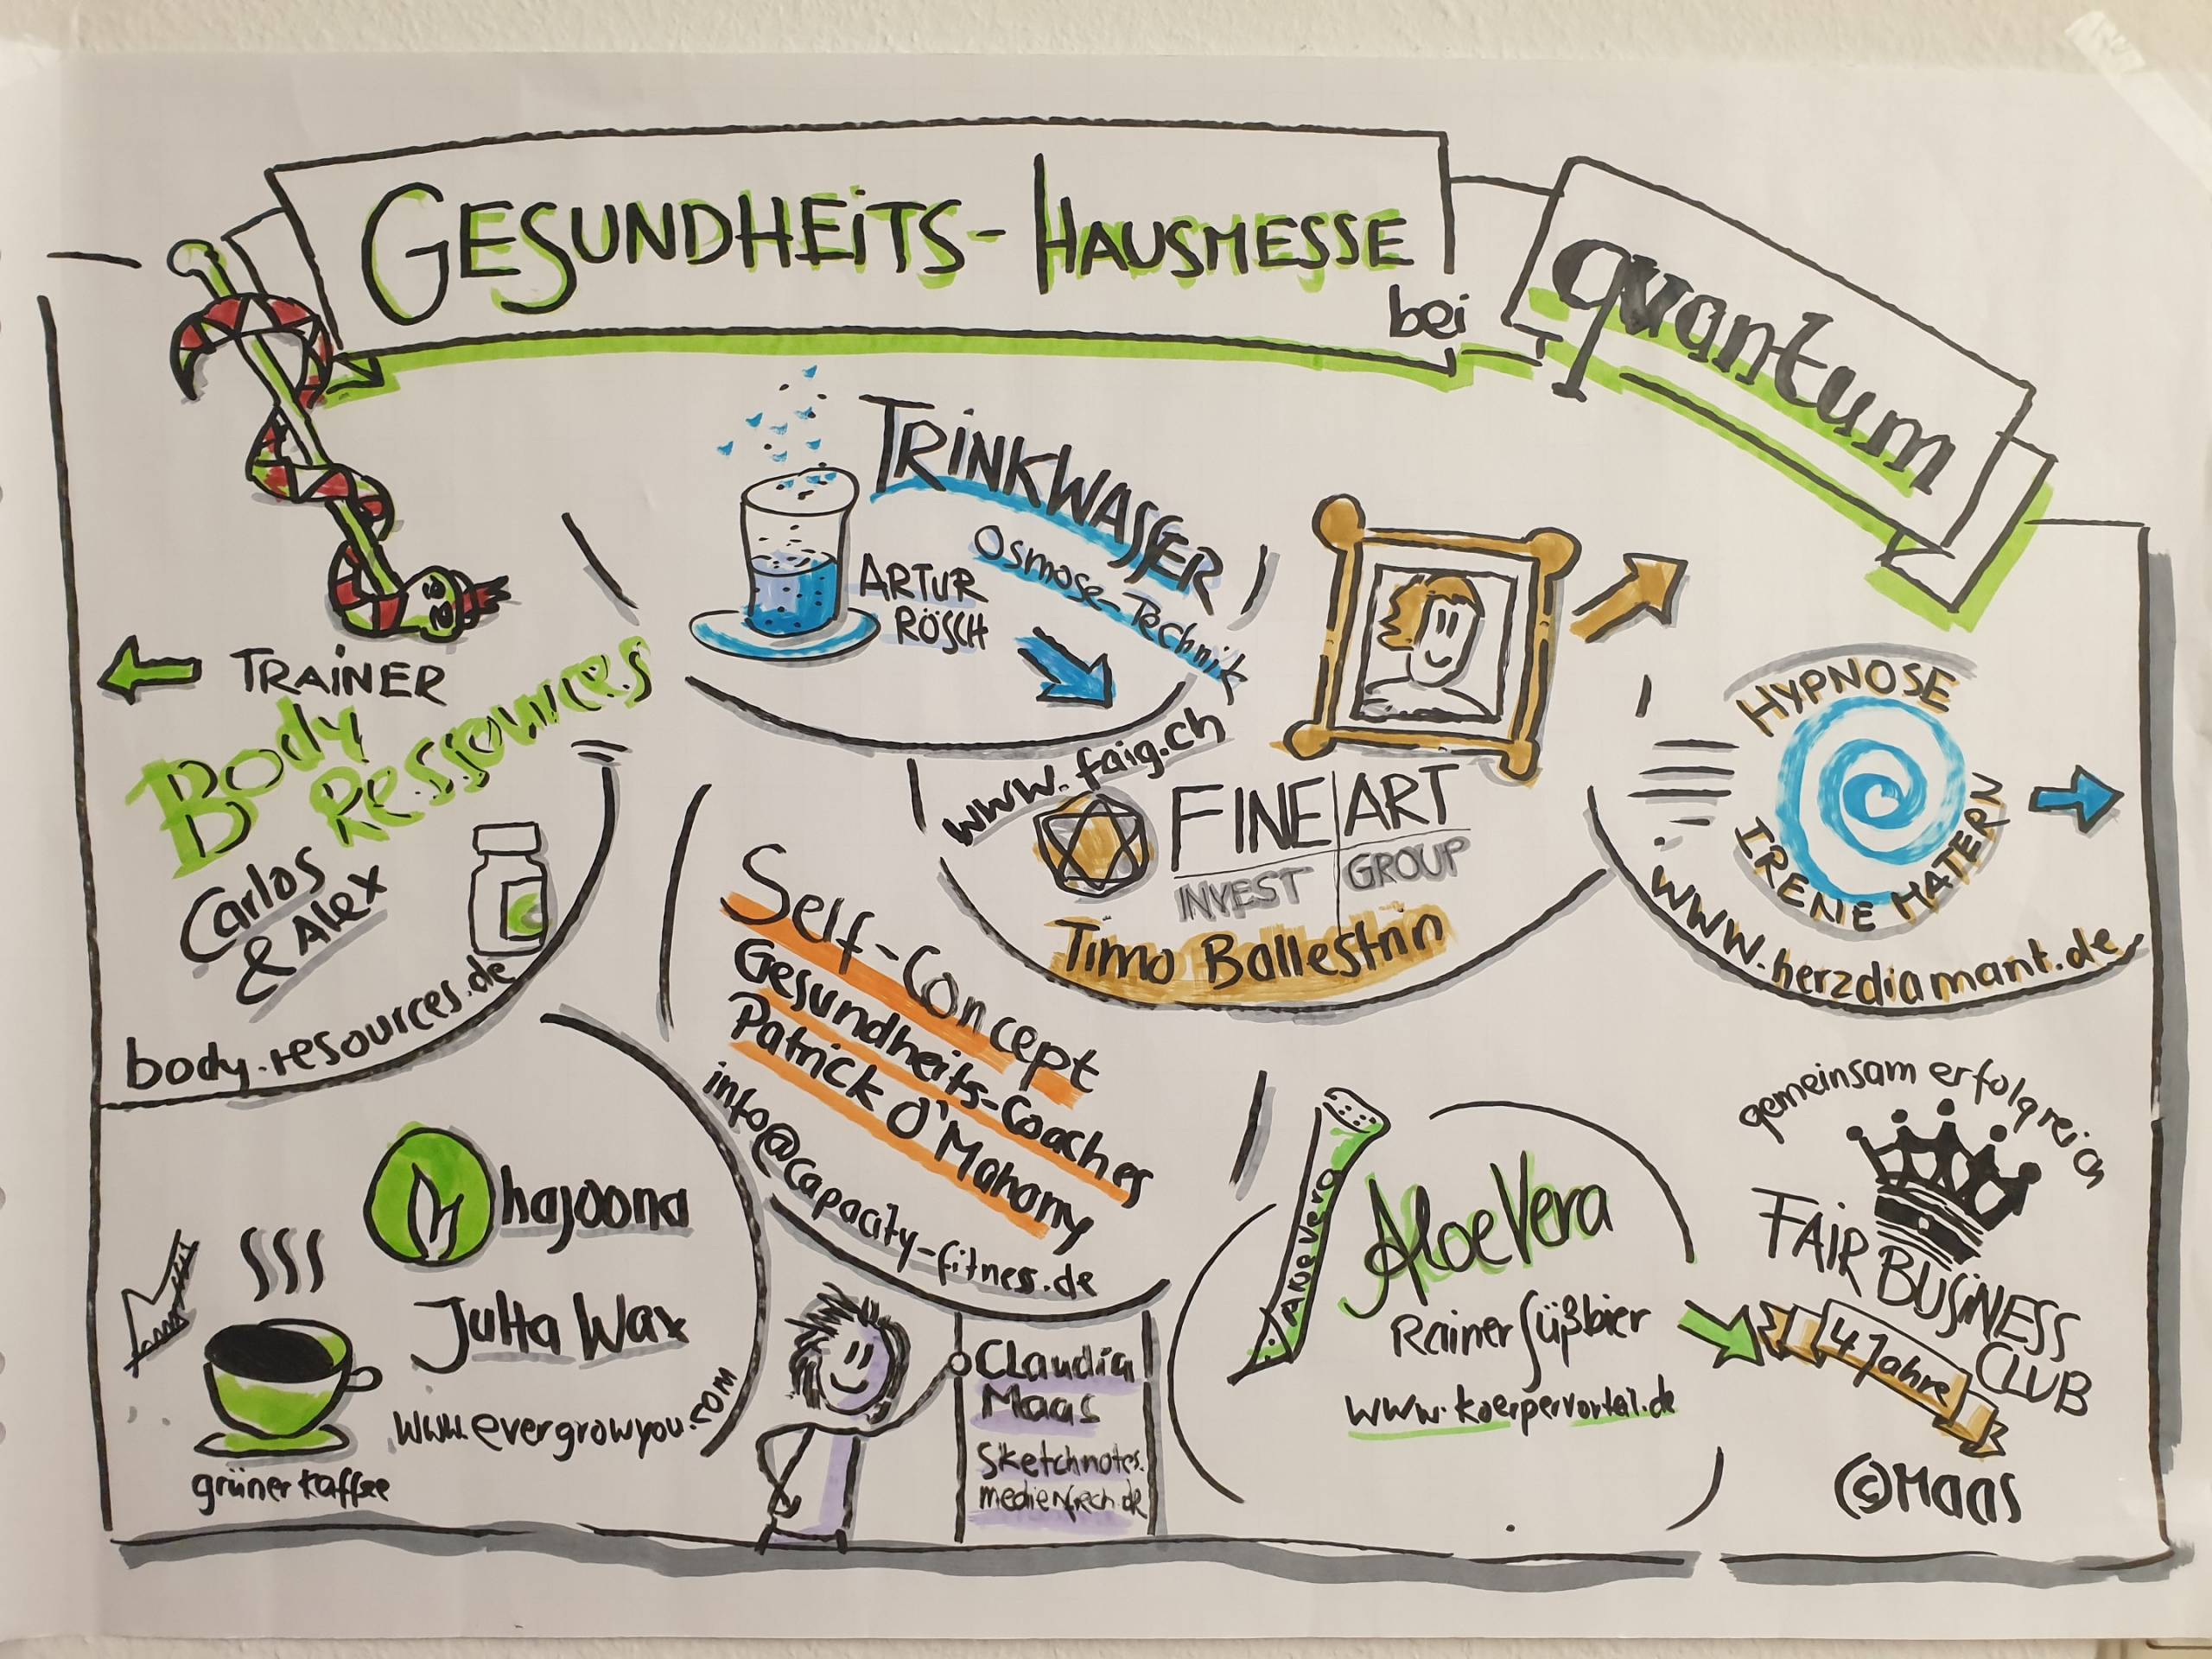 GESUNDHEITS-HAUSMESSE
bei
quantum
TRINKWASSER
Osmose-Technik
ARTUR
RÖSCH
TRAINER
Body
Ressources
Carlos
& Alex
body.resources.de
www.faig.ch
FINE ART
INVEST GROUP
Timo Ballestrin
HYPNOSE
IRENE MATERN
www.herzdiamant.de
Self-Concept
Gesundheits-Coaches
Patrick O'Mahony
info@capacity-fitnes.de
hajoona
Jutta Wax
www.evergrowyou.com
grüner Kaffee
Claudia
Maas
Sketchnotes.
Aloe Vera
Aloe Vera
Rainer Süßbier
www.koerpervorteil.de
gemeinsam erfolgreich
FAIR BUSINESS
CLUB
4 Jahre
©Maas